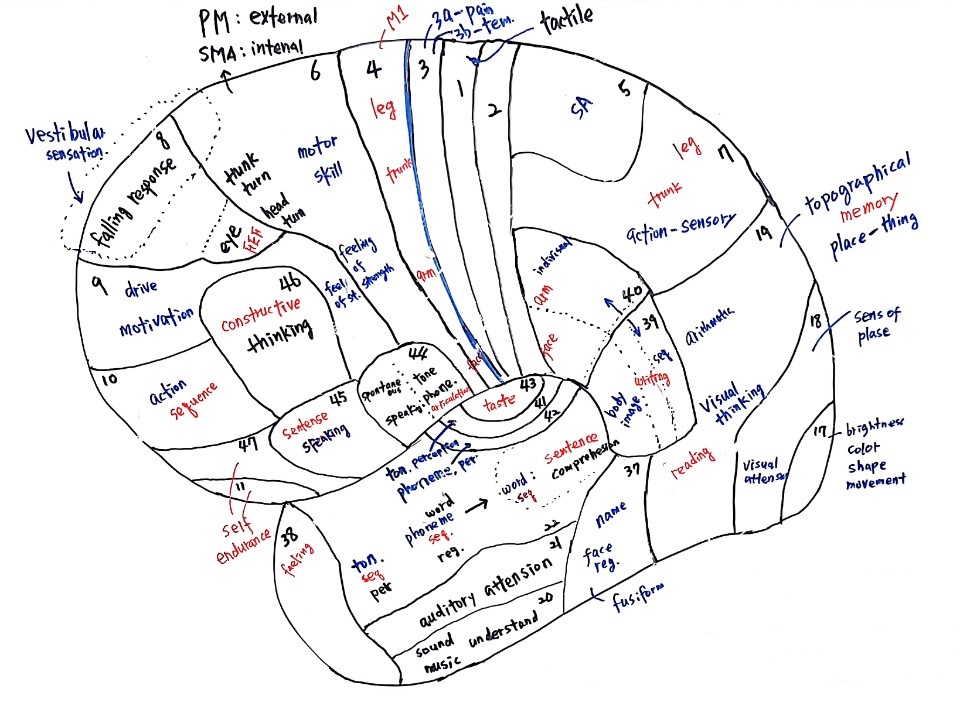 PM: external
SMA: intenal
M1
3a-pain
3b-tem.
tactile
6
4
3
1
2
5
SA
leg
leg
7
vestibular
sensation.
8
falling response
trunk
turn
head
turn
eye
motor
skill
trunk
trunk
action-sensory
19
topographical
memory
place-thing
9
drive
motivation
46
constructive
thinking
feeling
of
strength
feel
of st.
arm
individual
arm
face
face
40
39
seq
writing
body
image
arithmetic
18
sens of
plase
10
action
sequence
45
sentense
speaking
44
spontane
ous
tone
speaky.phone.
articulation
taste
43
41
42
visual
thinking
17
brightness
color
shape
movement
47
11
self
endurance
ton. perception
phoneme. per
sentence
comprehesion
word:
seq
37
reading
visual
attension
38
feeling
word
phoneme
seq.
reg.
ton.
seq
per
22
21
name
face
reg.
fusiform
auditory attension
20
sound understand
music